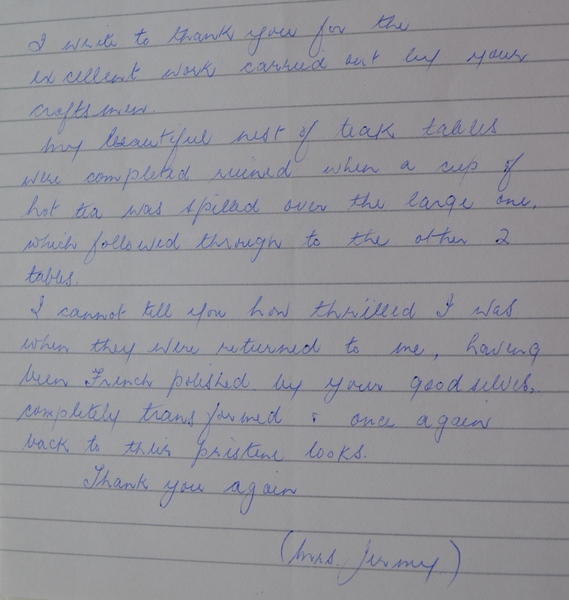 I write to thank you for the
excellent work carried out by your
craftsmen.
My beautiful nest of teak tables
were completed ruined when a cup of
hot tea was spilled over the large one,
which followed through to the other 2
tables.
I cannot tell you how thrilled I was
when they were returned to me, having
been French polished by your good selves.
completely transformed & once again
back to their pristine looks.
Thank you again
(Mrs. Jermy)